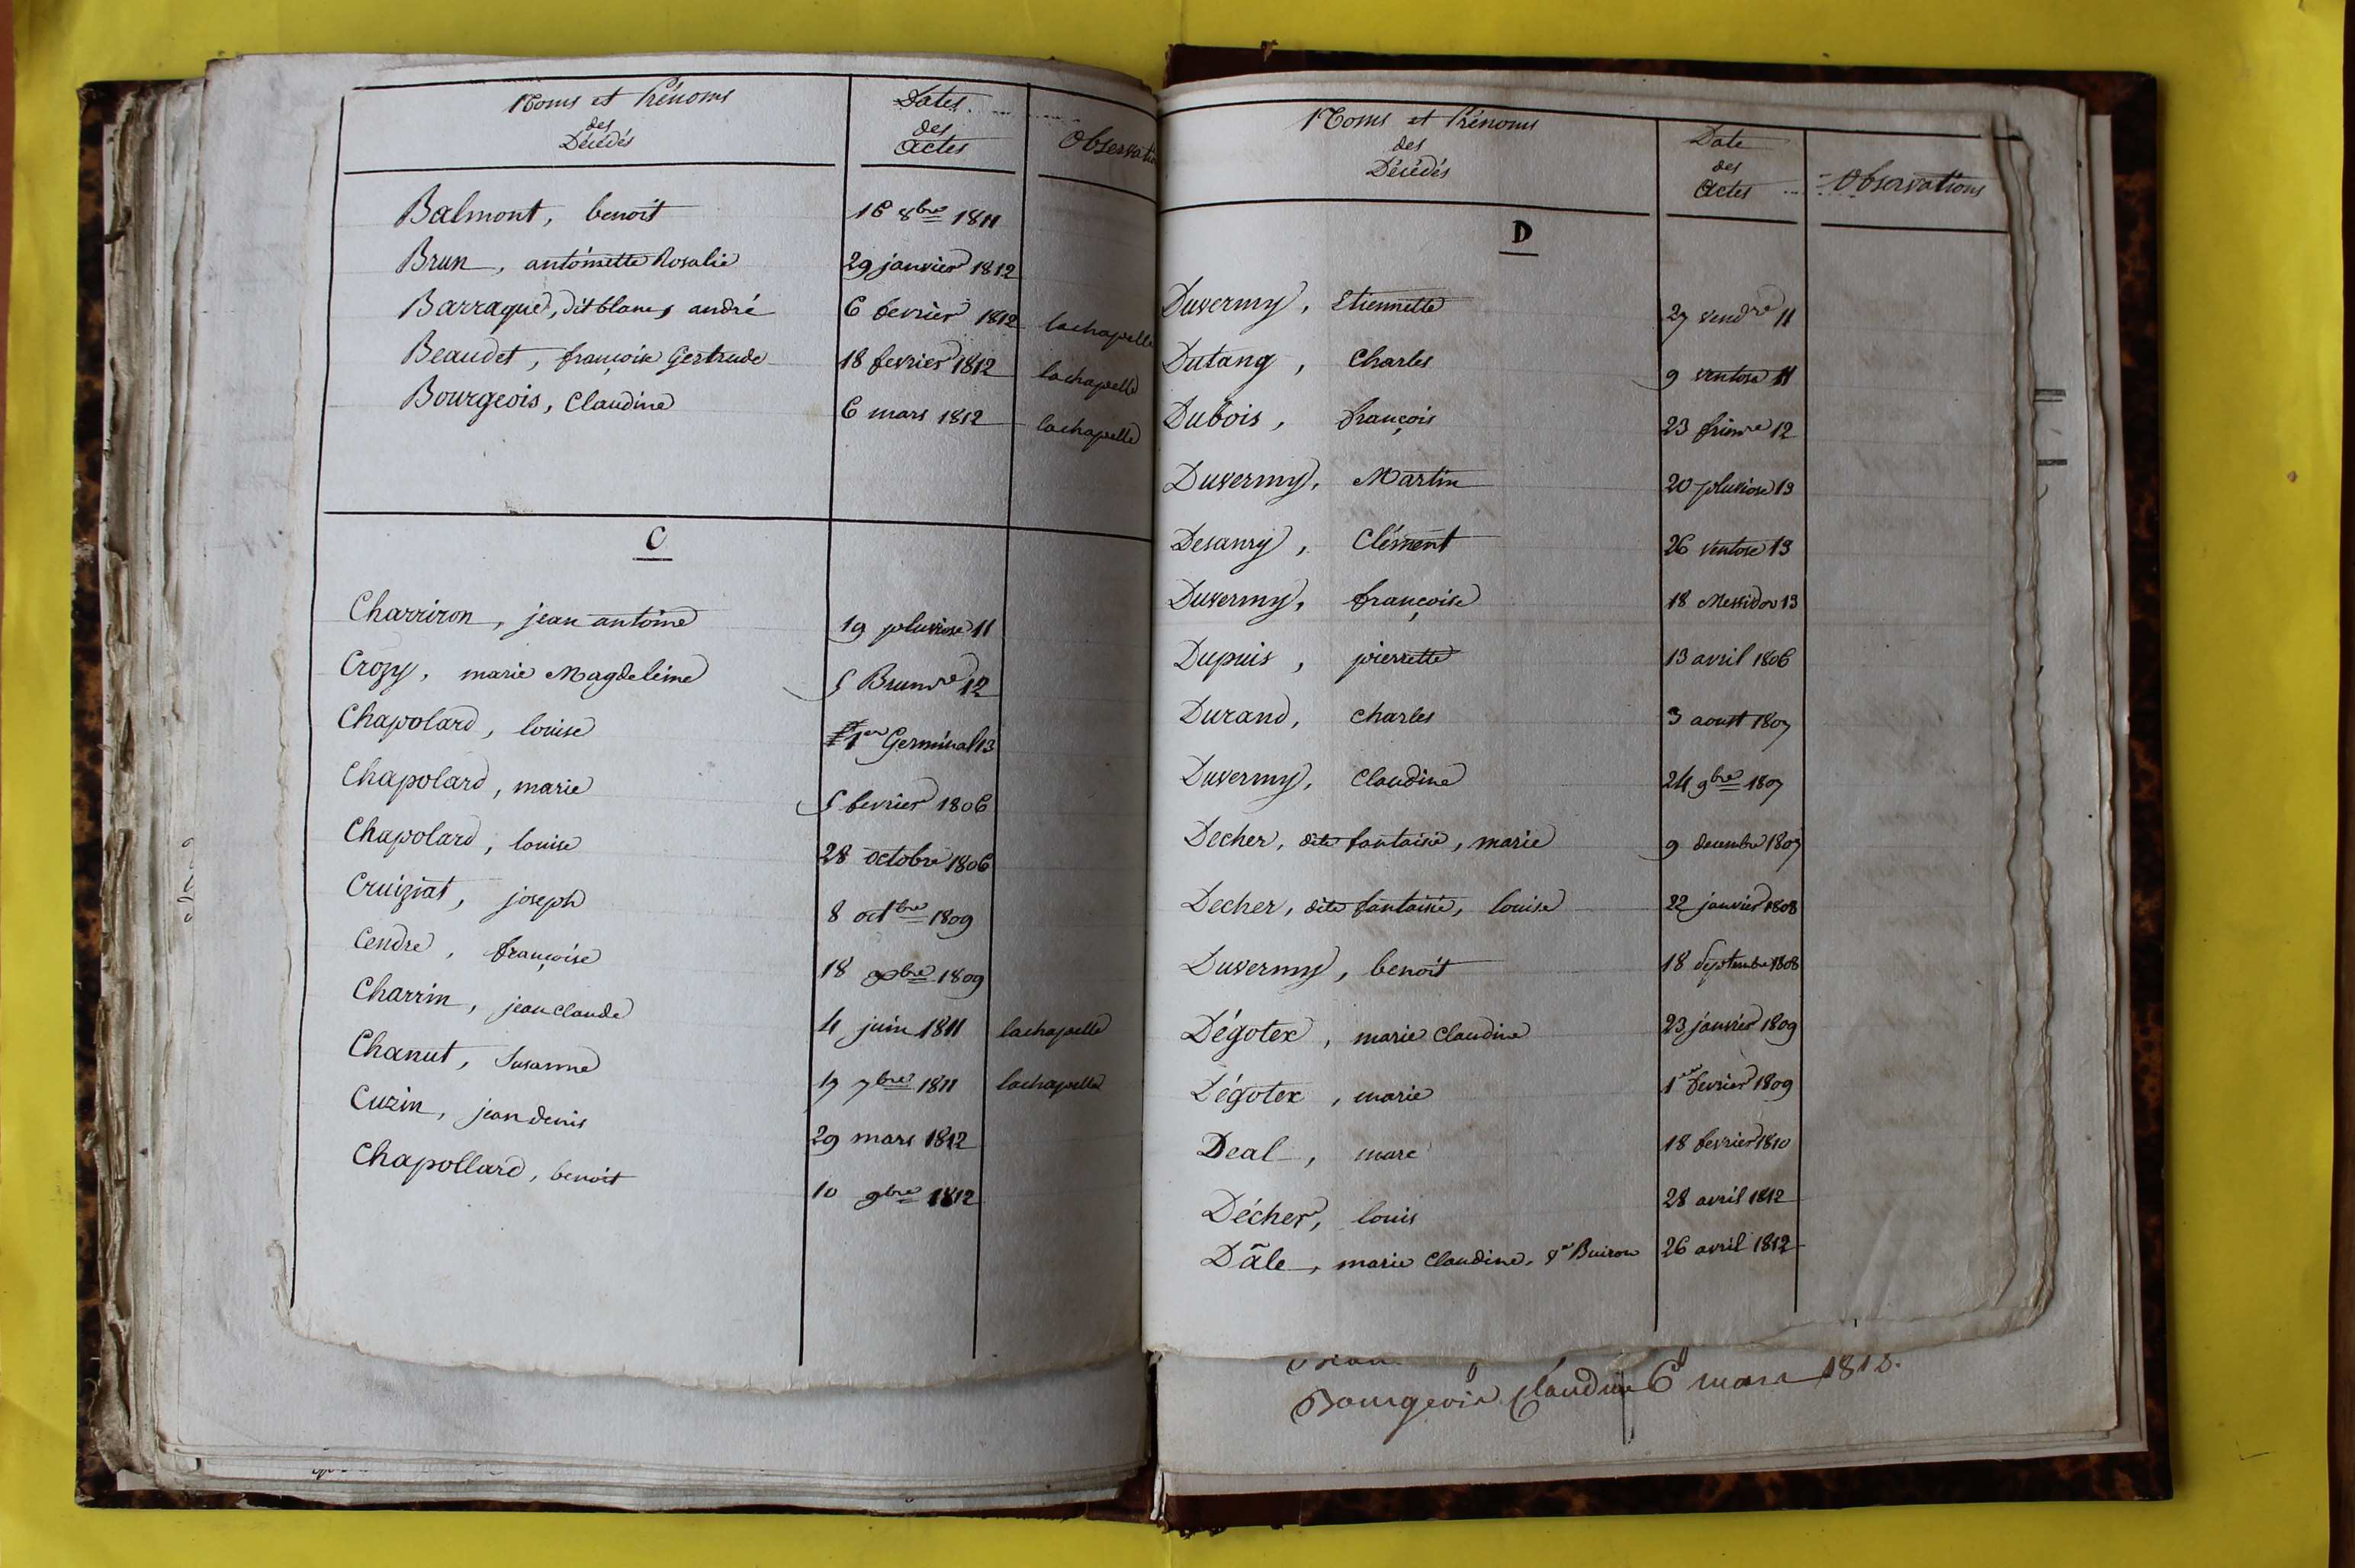 Noms et Prénoms
des
Décédés
Dates
des
Actes
Observatio
Balmont, benoit 16 8bre 1811
Brun, antoinette Rosalie 29 janvier 1812
Barraque, dit blanc, andré 6 fevrier 1812 lachapelle
Beaudet, françoise Gertrude 18 fevrier 1812 lachapelle
Bourgeois, Claudine 6 mars 1812 lachapelle
C
Charriron, jean antoine 19 pluviose 11
Crozy, marie Magdeleine 5 Brumre 12
Chapolard, louise 1er Germinal 13
Chapolard, marie 5 fevrier 1806
Chapolard, louise 28 octobre 1806
Cruiziat, joseph 8 octbre 1809
Cendre, françoise 18 bre 1809
Charrin, jean claude 4 juin 1811 lachapelle
Chanut, Susanne 17 7bre 1811 lachapelle
Cuzin, jean denis 29 mars 1812
Chapollard, benoit 10 9bre 1812
Noms et Prénoms
des
Décédés
Date
des
Actes
Observations
D
Duvermy, Etiennette 27 vendre 11
Dutang, Charles 9 ventose 11
Dubois, françois 23 frimre 12
Duvermy, Martin 20 pluviose 13
Desanry, Clément 26 ventose 13
Duvermy, françoise 18 Messidor 13
Dupuis, pierrette 13 avril 1806
Durand, charles 3 aoust 1807
Duvermy, Claudine 24 9bre 1807
Decher, dite fantaisie, marie 9 decembre 1807
Decher, dite fantaisie, louise 22 janvier 1808
Duvermy, benoit 18 Septembre 1808
Dégotex, marie Claudine 23 janvier 1809
Dégotex, marie 1er fevrier 1809
Deal, marc 18 fevrier 1810
Décher, louis 28 avril 1812
Dâle, marie Claudine, Buiron 26 avril 1812
Bourgeois Claudine 6 mars 1812.